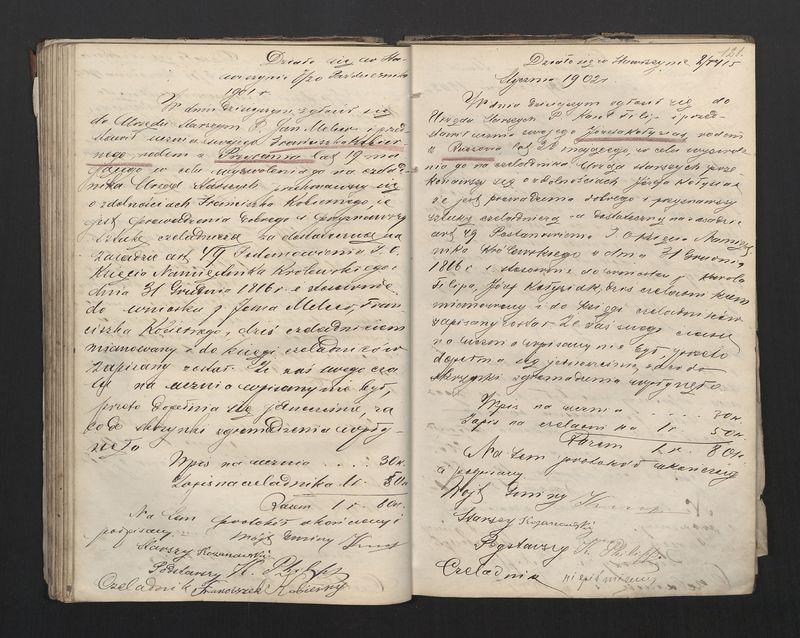 Działo się we Sta-
wiszynie 7/20 Października
1901 r.
W dniu dzisiejszym zgłosił się
do Urzędu Starszych P. Jan Melcer i przed-
stawił ucznia swojego Franciszka Kobier-
nego, rodem z lat 19 ma-
jącego w celu wyzwolenia go na czelad-
nika Urząd Starszych przekonawszy się
o zdolnościach Franciszka Kobiernego, że
jest prowadzenia dobrego i przyznawszy
sztukę czeladniczą za dostateczną na
zasadzie art. 49 Postanowienia J. O.
Księcia Namiestnika Królewskiego z
dnia 31 Grudnia 1816 r. i stosownie
do wniosku p. Jana Melcer, Fran-
ciszka Kobiernego, dziś czeladnikiem
mianowany i do księgi czeladników
zapisany został. Że zaś swego cza-
su na ucznia wpisanym nie był,
przeto dopełnia się jednocześnie, za
co do skrzynki zgromadzenia wpły-
nęło
Wpis na ucznia . . . 30 k.
Zapis na czeladnika 1 r. 50 k.
Razem 1 r. 80 k.
Na tem protokół ukończony i
podpisany Wójt Gminy
Starszy Rozanowski
Podstarszy K. Philipp
Czeladnik Franciszek Kobierny
121.
Działo się w Stawiszynie 2/15
Stycznia 1902 r.
W dniu dzisiejszym zgłosił się do
Urzędu Starszych P. Karol Filip i przed-
stawił ucznia swojego Józefa Kotysiak, rodem
z lat 22 mającego, w celu wyzwole-
nia go na czeladnika Urząd Starszych prze-
konawszy się o zdolnościach Józefa Kotysiak
że jest prowadzenia dobrego i przyznawszy
sztukę czeladniczą za dostateczną na zasadzie
art. 49 Postanowienia J. O. Księcia Namiest-
nika Królewskiego z dnia 31 Grudnia
1816 r. i stosownie do wniosku p. Karola
Filipa, Józef Kotysiak, dziś czeladnikiem
mianowany i do księgi czeladników
zapisany został. Że zaś swego czasu
na ucznia wpisany nie był, przeto
dopełnia się jednocześnie, za co do
skrzynki zgromadzenia wpłynęło
Wpis na ucznia . . . . . 30 k.
Zapis na czeladnika 1 r. 50 k.
Razem 1 r. 80 k.
Na tem protokół ukończony
i podpisany
Wójt Gminy
Starszy Rozanowski
Podstarszy K. Philipp
Czeladnik niepiśmienny